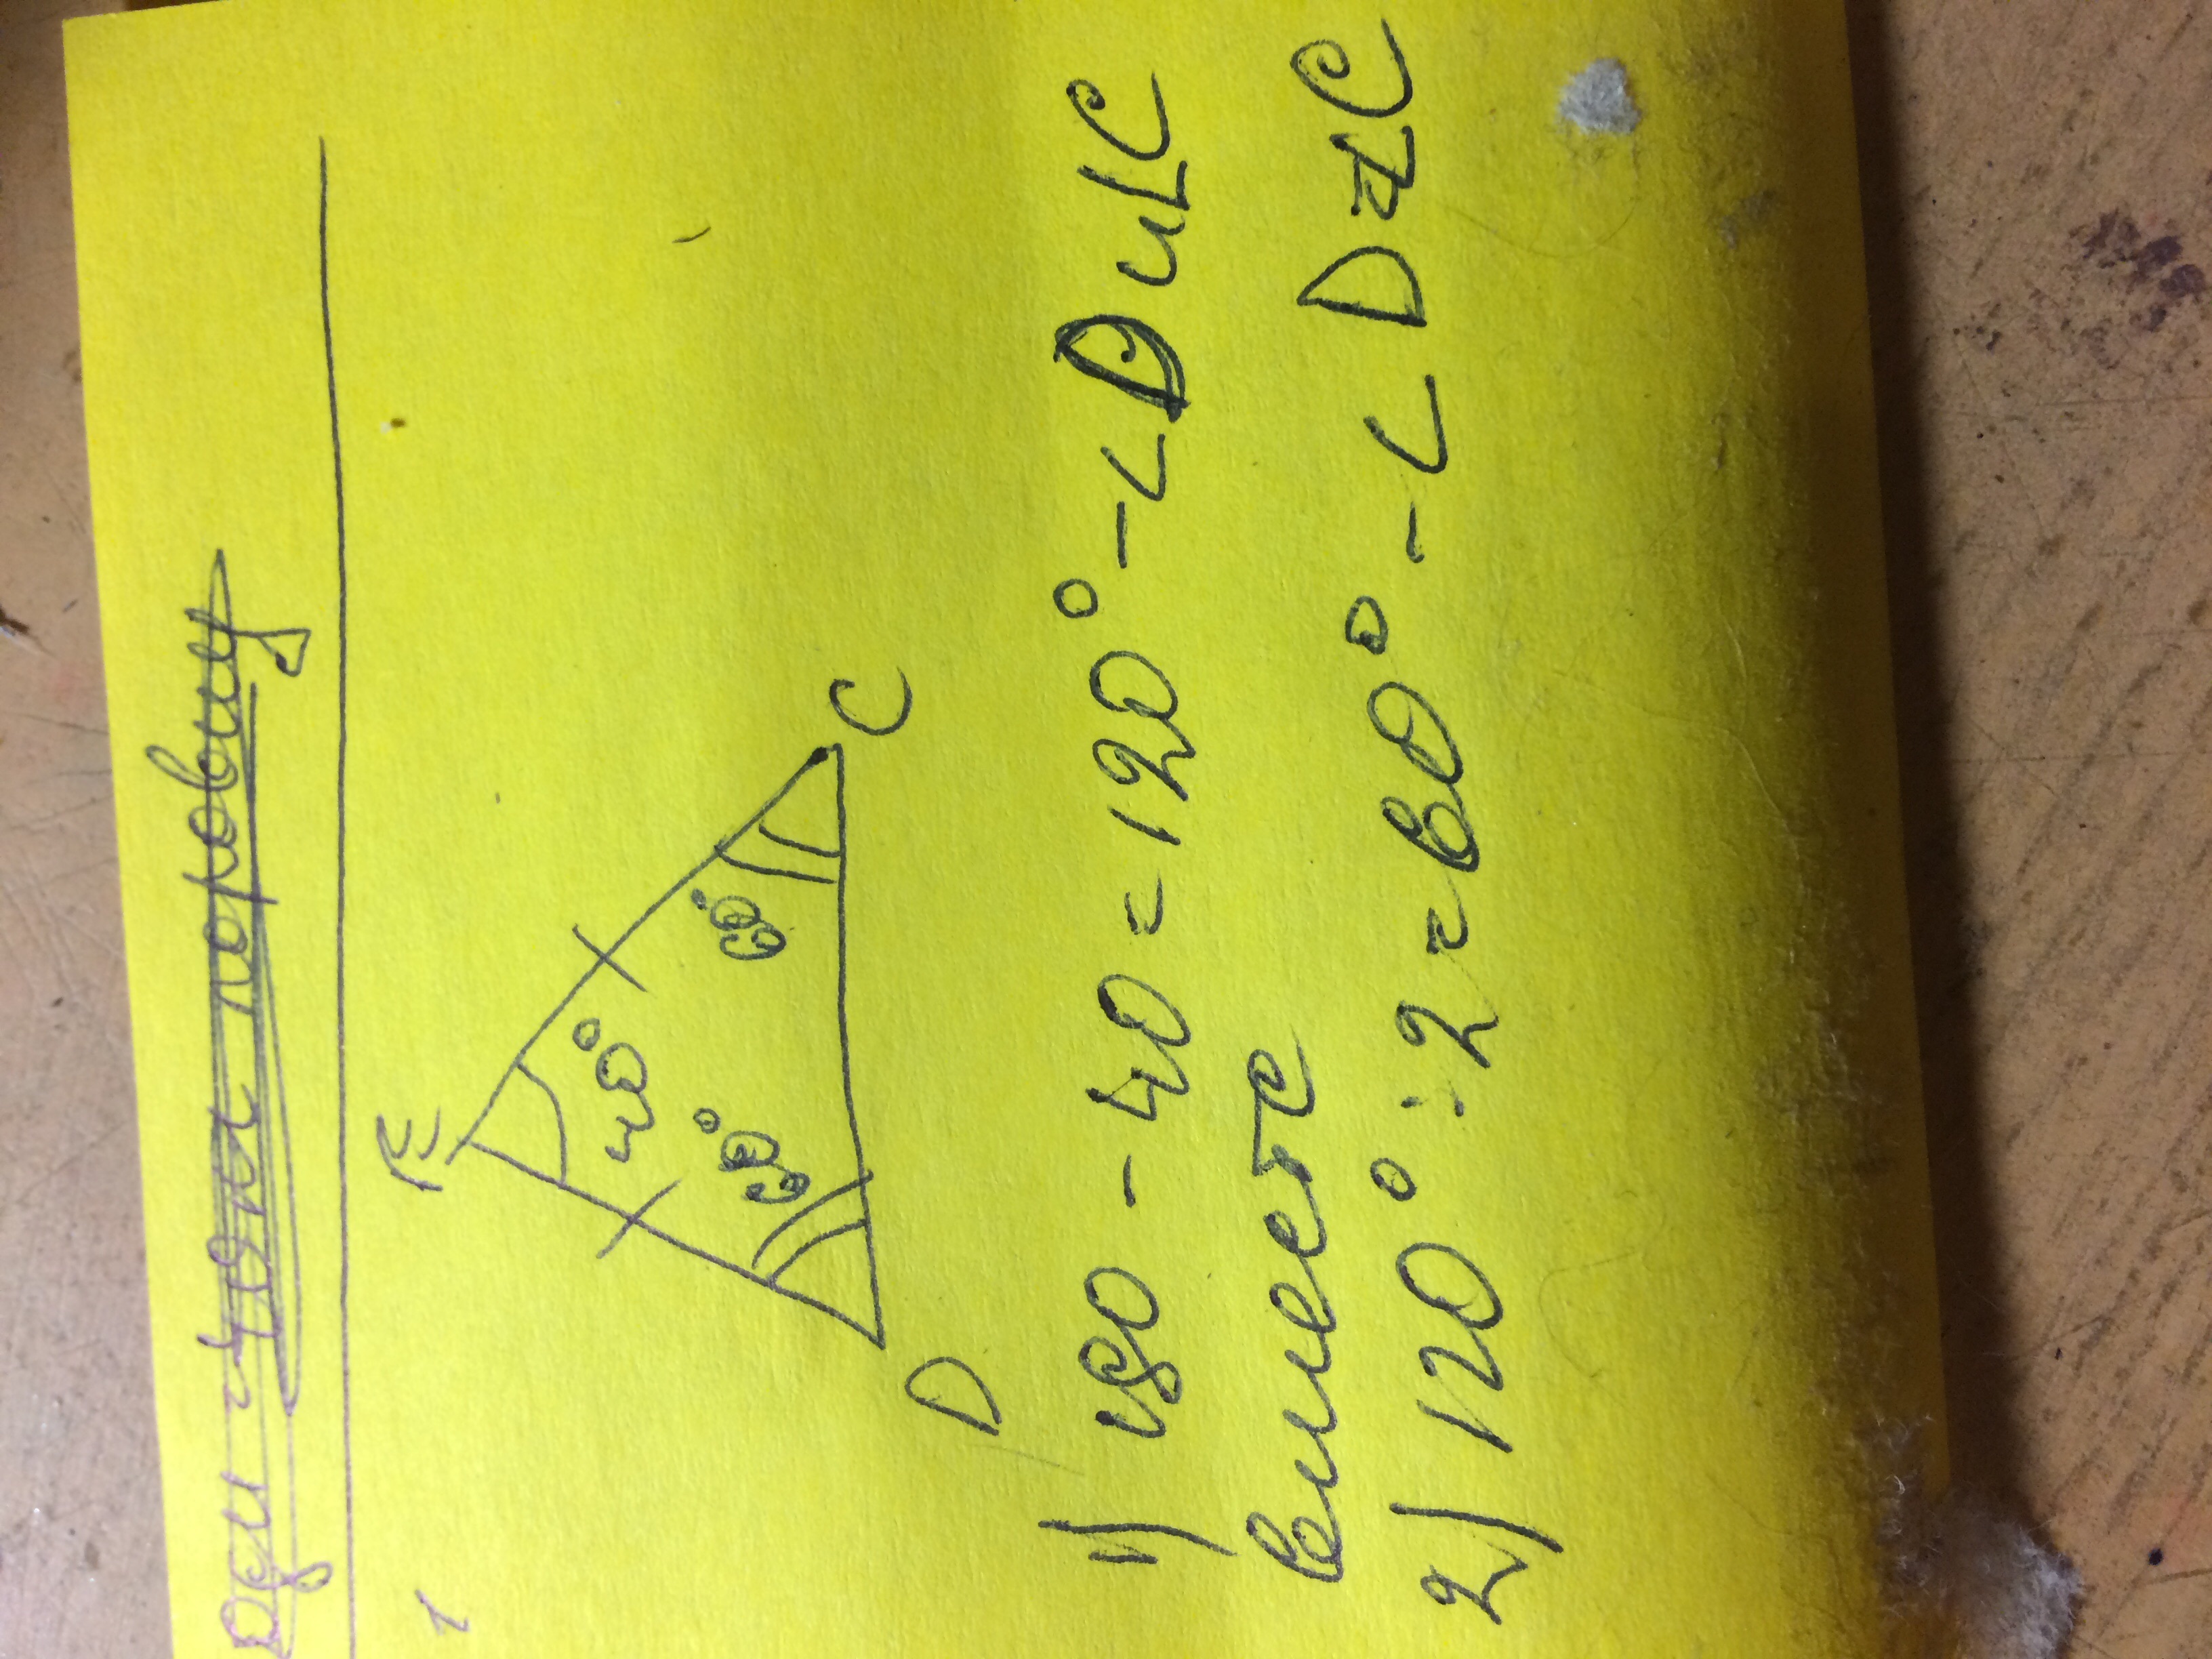 1
E
40°
60° 60°
D C
1) 180 - 40 = 120° - ∠D и ∠C
вместе
2) 120° : 2 = 60° - ∠D и ∠C